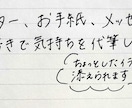 ター、お手紙、メッセ
きで気持ちを代筆し
ちょっとしたイラ
添えられます